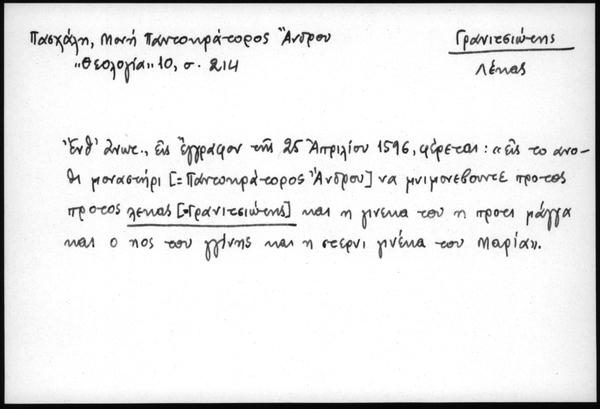 Πασχάλη, Μονή Παντοκράτορος Ἄνδρου
Γρανιτσιώτης
"Θεολογία" 10, σ. 214
Λέκας
Ἔνθ' ἄνωτ., εἰς ἔγγραφον τῆς 25 Ἀπριλίου 1596, φέρεται: «εἰς το ανο-
θι μοναστήρι [= Παντοκράτορος Ἄνδρου] να μνιμονεβουντε προτος
προτος λεκας [=Γρανιτσιώτης] και η γινεκα του η προτι μάγγα
και ο ηος του γγίνης και η στερνι γινέκα του Μαρία».